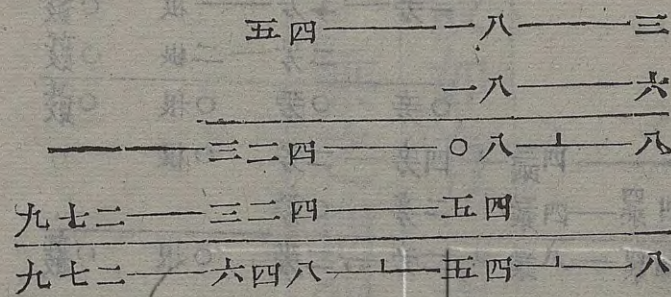 五四——一八——三
一八——六
———三二四——〇八一⊥一八
九七二——三二四——五四
九七二——六四八一⊥一五四一⊥一八